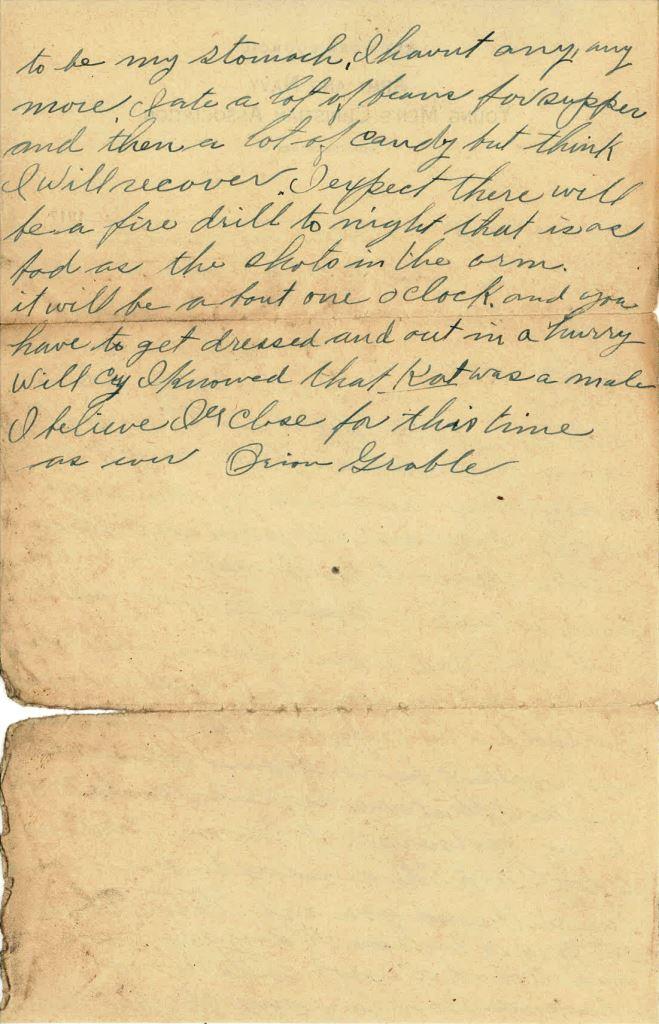 to be my stomach, I havnt any, any
more. I ate a lot of beans for supper
and then a lot of candy but think
I will recover. I expect there will
be a fire drill to night that is as
bad as the shots in the arm.
it will be about one oclock. and you
have to get dressed and out in a hurry
Will I knowed that Kat was a male
I believe Ill close for this time
as ever Orion Grable